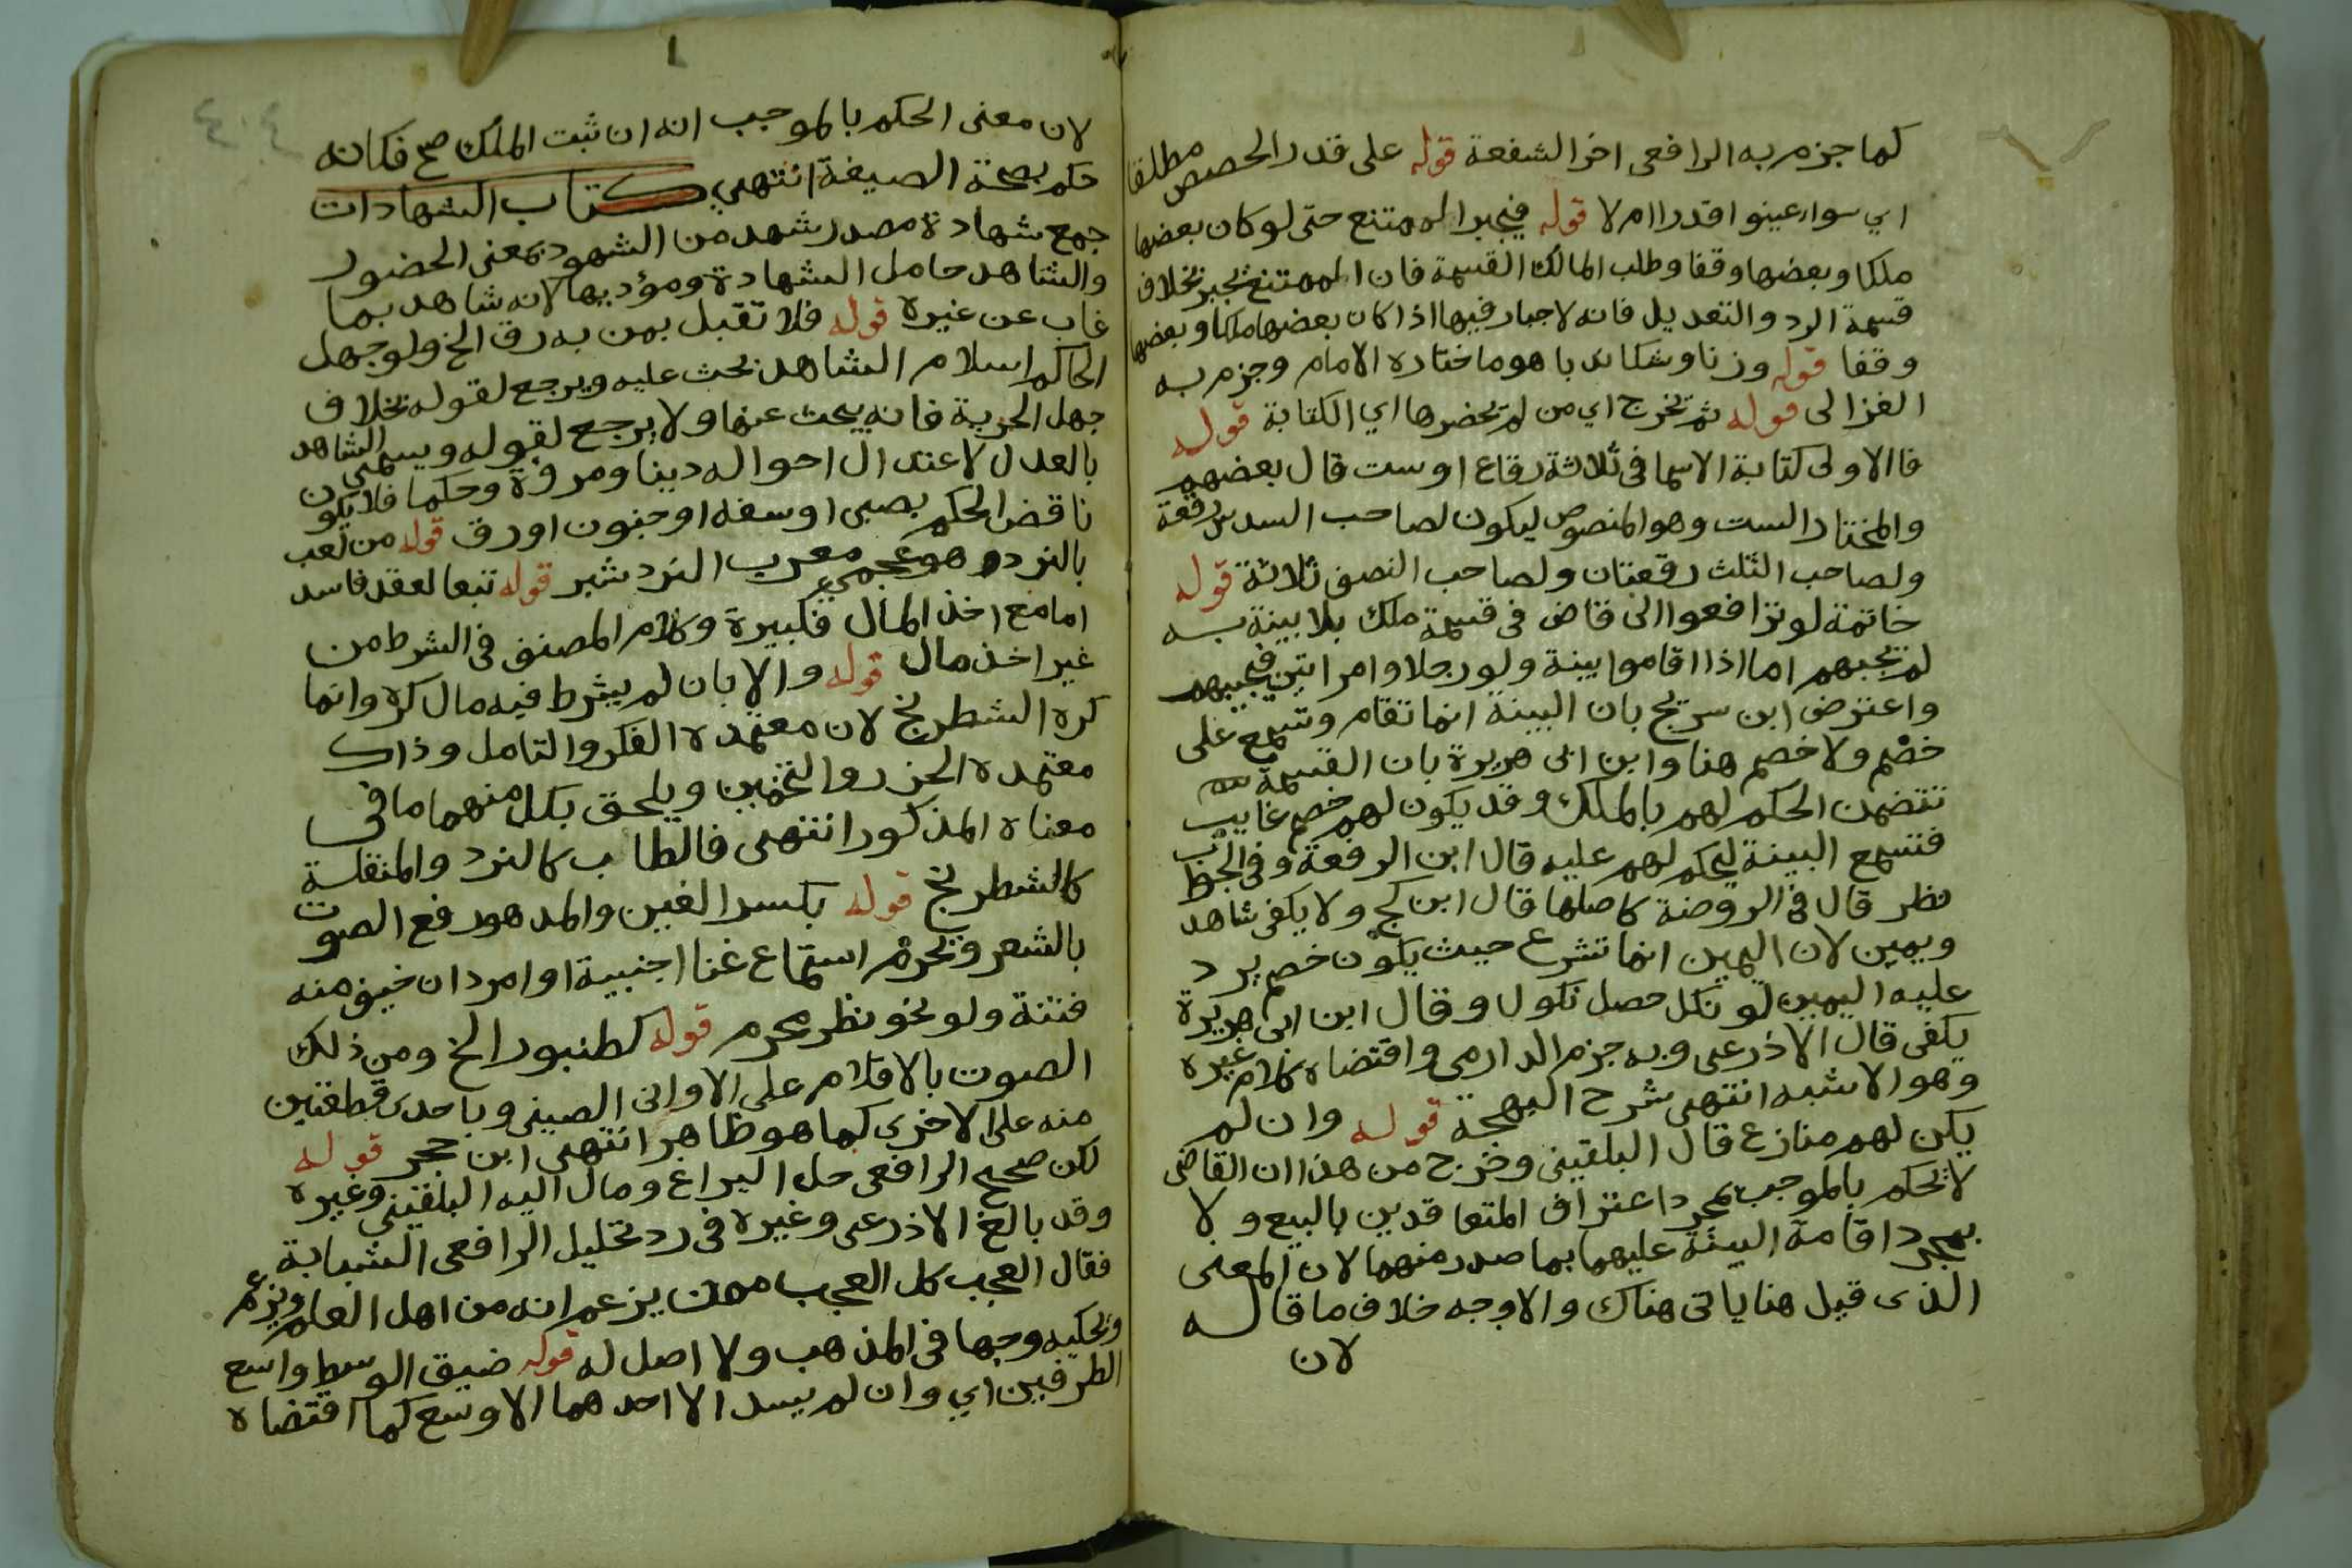 كما جزم به الرافعى اخر الشفعة قوله على قدر الحصص مطلقا
اي سوا عينوا قدرا ام لا قوله فيجبر الممتنع حتى لو كان بعضها
ملكا وبعضها وقفا وطلب المالك القسمة فان الممتنع يجبر بخلاف
قسمة الرد والتعديل فانه لا اجبار فيها اذا كان بعضها ملكا وبعضها
وقفا قوله وزنا وشكلا هو ما ختاره الامام وجزم به
الغزالى قوله ثم تخرج اي من لم يحضرها اي الكتابة قوله
فالاولى كتابة الاسما فى ثلاثة رقاع اوست قال بعضهم
والمختار الست وهو المنصوص ليكون لصاحب السدس رقعة
ولصاحب الثلث رقعتان ولصاحب النصف ثلاثة قوله
خاتمة لو ترافعوا الى قاض فى قسمة ملك بلا بينة به
لم يجبهم اما اذا اقاموا بينة ولو رجلا وامراتين فيجيبهم
واعترض ابن سريج بان البينة انما تقام وتسمع على
خصم ولا خصم هنا وابن ابى هريرة بان القسمة
تتضمن الحكم لهم بالملك وقد يكون لهم خصم غايب
فتسمع البينة ليحكم لهم عليه قال ابن الرفعة وفى الجواب
نظر قال فى الروضة كاصلها قال ابن كج ولا يكفى شاهد
ويمين لان اليمين انما تشرع حيث يكون خصم يرد
عليه اليمين لو نكل حصل نكول وقال ابن ابى هريرة
يكفى قال الاذرعى وبه جزم الدارمى واقتضاه كلام غيره
وهو الاشبه انتهى شرح البهجة قوله وان لم
يكن لهم منازع قال البلقينى وخرج من هذا ان القاضى
لا يحكم بالموجب بمجرد اعتراف المتعاقدين بالبيع ولا
بمجرد اقامة البينة عليهما بما صدر منهما لان المعنى
الذى قيل هنا ياتى هناك والاوجه خلاف ما قاله
لان
لان معنى الحكم بالموجب انه ان ثبت الملك صح فكانه
حكم بصحة الصيغة انتهى كتاب الشهادات
جمع شهادة مصدر شهد من الشهود بمعنى الحضور
والشاهد حامل الشهادة ومؤديها لانه شاهد بما
غاب عن غيره قوله فلا تقبل بمن به رق الخ ولو جهل
الحاكم اسلام الشاهد بحث عليه ويرجع لقوله بخلاف
جهل الحرية فانه يبحث عنها ولا يرجع لقوله ويسمى الشاهد
بالعدل لاعتدال احواله دينا ومروة وحكما فلا يكون
ناقض الحكم بصبى او سفه او جنون اورق قوله من لعب
بالنرد هو عجمي معرب النردشير قوله تبعا لعقد فاسد
اما مع اخذ المال فكبيرة وكلام المصنف فى الشرط من
غير اخذ مال قوله والا بان لم يشرط فيه مال كره وانما
كره الشطرنج لان معتمده الفكر والتامل وذاك
معتمده الحزر والتخمين ويلحق بكل منهما ما فى
معناه المذكور انتهى فالطاب كالنرد والمنقلة
كالشطرنج قوله بكسر الغين والمد هو رفع الصوت
بالشعر وتحرم استماع غنا اجنبية او امرد ان خيف منه
فتنة ولو نحو نظر محرم قوله كطنبور الخ ومن ذلك
الصوت بالاقلام على الاوانى الصينى وباحدى قطعتين
منه على الاخرى كما هو ظاهر انتهى ابن حجر قوله
لكن صحح الرافعى حل اليراع ومال اليه البلقينى وغيره
وقد بالغ الاذرعى وغيره فى رد تحليل الرافعى الشبابة
فقال العجب كل العجب ممن يزعم انه من اهل العلم ويزعم
ويحكيه وجها فى المذهب ولا اصل له قوله ضيق الوسط واسع
الطرفين اي وان لم يسد الا احدهما الاوسع كما اقتضاه